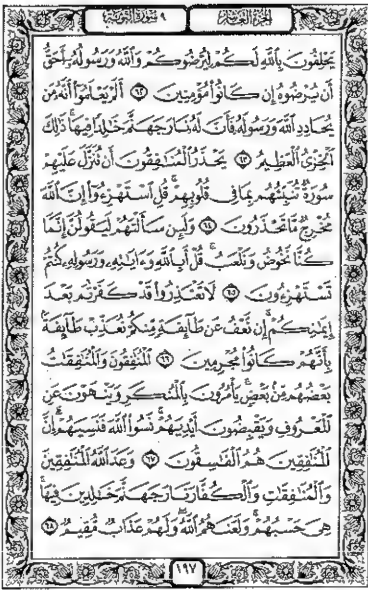 الجزء العاشر ٩ سورة التوبة
يَحْلِفُونَ بِاللَّهِ لَكُمْ لِيُرْضُوكُمْ وَاللَّهُ وَرَسُولُهُ أَحَقُّ
أَن يُرْضُوهُ إِن كَانُوا مُؤْمِنِينَ ٦٢ أَلَمْ يَعْلَمُوا أَنَّهُ مَن
يُحَادِدِ اللَّهَ وَرَسُولَهُ فَأَنَّ لَهُ نَارَ جَهَنَّمَ خَالِدًا فِيهَا ذَٰلِكَ
الْخِزْيُ الْعَظِيمُ ٦٣ يَحْذَرُ الْمُنَافِقُونَ أَن تُنَزَّلَ عَلَيْهِمْ
سُورَةٌ تُنَبِّئُهُم بِمَا فِي قُلُوبِهِمْ قُلِ اسْتَهْزِءُوا إِنَّ اللَّهَ
مُخْرِجٌ مَّا تَحْذَرُونَ ٦٤ وَلَئِن سَأَلْتَهُمْ لَيَقُولُنَّ إِنَّمَا
كُنَّا نَخُوضُ وَنَلْعَبُ قُلْ أَبِاللَّهِ وَءَايَاتِهِ وَرَسُولِهِ كُنتُمْ
تَسْتَهْزِءُونَ ٦٥ لَا تَعْتَذِرُوا قَدْ كَفَرْتُم بَعْدَ
إِيمَانِكُمْ إِن نَّعْفُ عَن طَائِفَةٍ مِّنكُمْ نُعَذِّبْ طَائِفَةً
بِأَنَّهُمْ كَانُوا مُجْرِمِينَ ٦٦ الْمُنَافِقُونَ وَالْمُنَافِقَاتُ
بَعْضُهُم مِّن بَعْضٍ يَأْمُرُونَ بِالْمُنكَرِ وَيَنْهَوْنَ عَنِ
الْمَعْرُوفِ وَيَقْبِضُونَ أَيْدِيَهُمْ نَسُوا اللَّهَ فَنَسِيَهُمْ إِنَّ
الْمُنَافِقِينَ هُمُ الْفَاسِقُونَ ٦٧ وَعَدَ اللَّهُ الْمُنَافِقِينَ
وَالْمُنَافِقَاتِ وَالْكُفَّارَ نَارَ جَهَنَّمَ خَالِدِينَ فِيهَا
هِيَ حَسْبُهُمْ وَلَعَنَهُمُ اللَّهُ وَلَهُمْ عَذَابٌ مُّقِيمٌ ٦٨
١٩٧